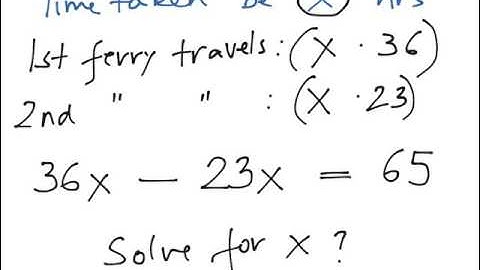 Time taken be x hrs
1st ferry travels : (x · 36)
2nd " " : (x · 23)
36x — 23x = 65
Solve for x ?